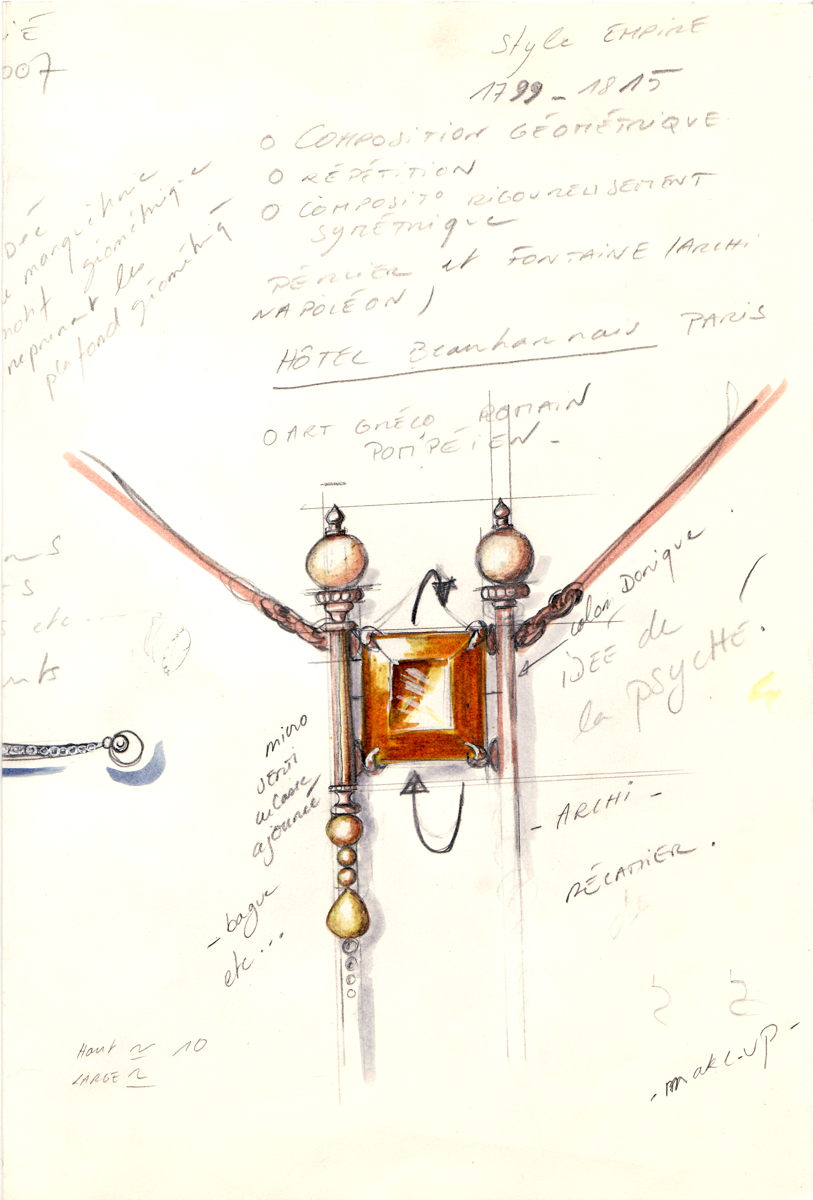 IÉ
007
Style EMPIRE
1799 - 1815
O COMPOSITION GÉOMÉTRIQUE
O RÉPÉTITION
O COMPOSITO RIGOUREUSEMENT
SYMÉTRIQUE
PÉRCIER et FONTAINE (ARCHI
NAPOLÉON)
HÔTEL Beauharnais PARIS
O ART GRÉCO ROMAIN
POMPÉIEN -
Dec
marqueterie
motif géométrique
reprenant les
plafond géométriq
S
etc
nts
colon Dorique
IDÉE de
la PSYCHÉ.
micro
serti
ajouré
- bague
etc ...
- ARCHI -
RÉCAMIER.
de
Haut ~ 10
LARGE ~
- make-up -